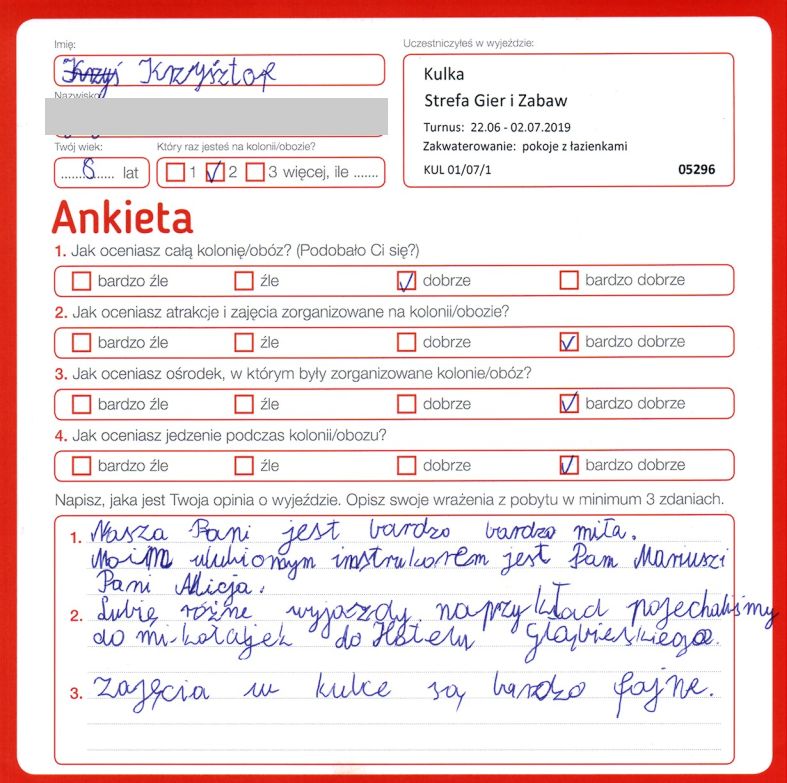 Imię:
Krzyś Krzysztof
Nazwisko:
Twój wiek:
8 lat
Który raz jesteś na kolonii/obozie?
1 2 3 więcej, ile .......
Uczestniczyłeś w wyjeździe:
Kulka
Strefa Gier i Zabaw
Turnus: 22.06 - 02.07.2019
Zakwaterowanie: pokoje z łazienkami
KUL 01/07/1 05296
Ankieta
1. Jak oceniasz całą kolonię/obóz? (Podobało Ci się?)
bardzo źle źle dobrze bardzo dobrze
2. Jak oceniasz atrakcje i zajęcia zorganizowane na kolonii/obozie?
bardzo źle źle dobrze bardzo dobrze
3. Jak oceniasz ośrodek, w którym były zorganizowane kolonie/obóz?
bardzo źle źle dobrze bardzo dobrze
4. Jak oceniasz jedzenie podczas kolonii/obozu?
bardzo źle źle dobrze bardzo dobrze
Napisz, jaka jest Twoja opinia o wyjeździe. Opisz swoje wrażenia z pobytu w minimum 3 zdaniach.
1. Nasza Pani jest bardzo bardzo miła.
Moim ulubionym instrukorem jest Pam Mariuszi
Pani Alicja.
2. Lubię różne wyjazdy naprzykład pojechaliśmy
do mi-kołajek do Hotelu Głąbieskiego.
3. Zajęcia w kulce są bardzo fajne.